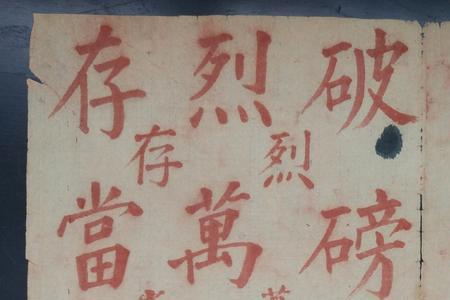 破磅
烈
烈萬
存
存當